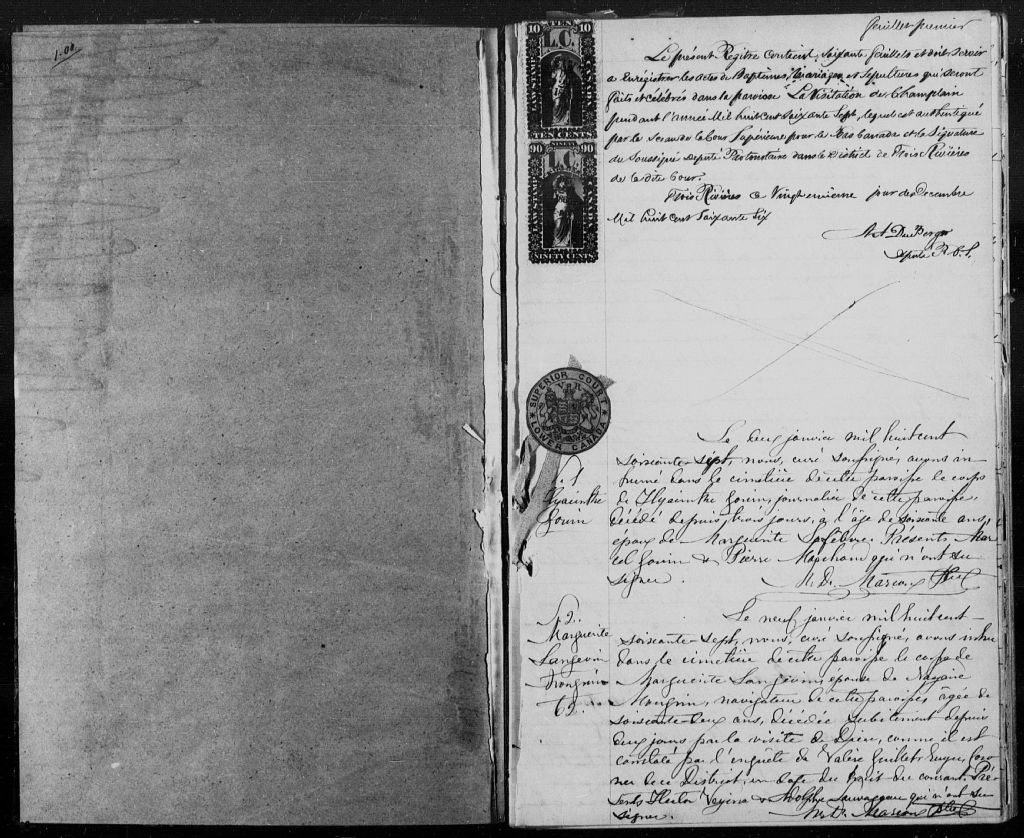 1-00
feuillet premier
10 TEN 10
L.C.
LAW STAMP
TEN CENTS
90 NINETY 90
L.C.
LAW STAMP
NINETY CENTS
Le présent Registre contient soixante feuillets et doit servir
a Enregistrer les actes de Baptêmes, Mariages et Sepultures qui seront
faits et célébrés dans la paroisse La Visitation de Champlain
pendant l'année Mil huit cent Soixante Sept, lequel est authentiqué
par le Sceau de la Cour Supérieure pour le Bas Canada et la Signature
du Soussigné Deputé Protonotaire dans le District de Trois Rivières
de la dite Cour.
Trois Rivières ce Vingt enieme jour de Decembre
Mil huit cent Soixante Six
Deputé P.C.S.
SUPERIOR COURT
V R
LOWER CANADA
Le deux janvier mil huit cent
soixante-sept, nous, curé soussigné, avons in-
humé dans le cimetière de cette paroisse le corps
de Hyacinthe Gouin, journalier de cette paroisse,
décédé depuis trois jours, à l'âge de soixante ans,
époux de Marguerite Lefebvre. Présents, Mar-
cel Gouin & Pierre Marchand qui n'ont su
signer.
M. Dr. Marcoux Ptre
S. 1
Hyacinthe
Gouin
Le neuf janvier mil huit cent
soixante-sept, nous, curé soussigné, avons inhu
dans le cimetière de cette paroisse le corps de
Marguerite Langevin, épouse de Nazaire
Mongrin, navigateur de cette paroisse, âgée de
soixante-deux ans, décédée subitement depuis
deux jours par la visite de Dieu, comme il est
constaté par l'enquête de Valère Guillet Ecuyer, Coro
ner de ce District, en date du huit du courant. Pré-
sents Hector Vezina & Adolphe Sauvageau qui n'ont su
signer.
M. Dr. Marcoux Ptre
S. 2.
Marguerite
Langevin
62